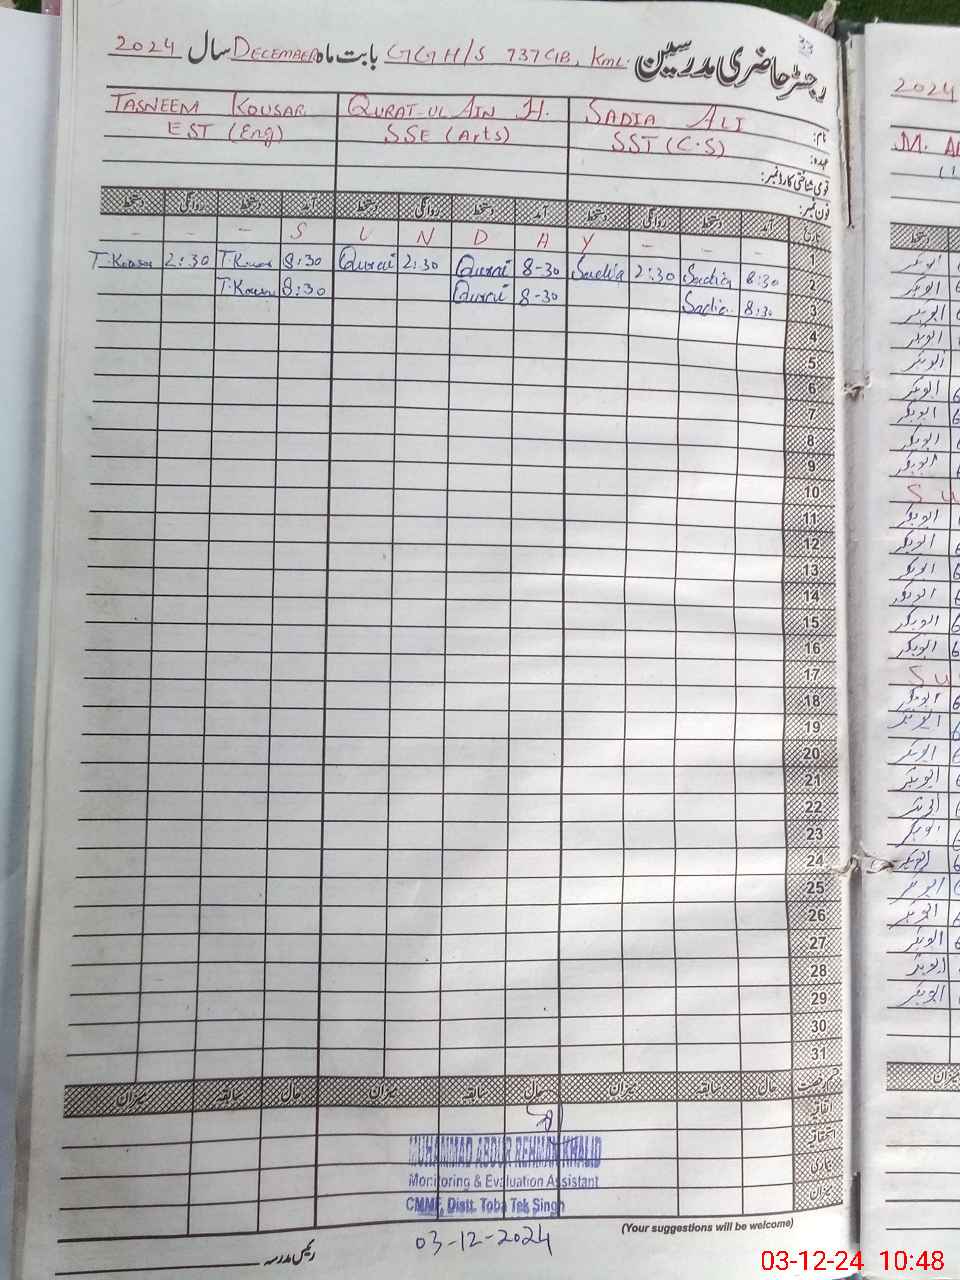 رجسٹر حاضری مدرسین GGH/S 737 GB, Kml. بابت ماہ DECEMBER سال 2024
33
نام: SADIA ALI QURAT-UL AIN H. TASNEEM KOUSAR
عہدہ: SST (C.S) SSE (Arts) EST (Eng)
قومی شناختی کارڈ نمبر:
فون نمبر:
تاریخ آمد دستخط روانگی دستخط آمد دستخط روانگی دستخط آمد دستخط روانگی دستخط
- - - S U N D A Y - - -
T.Kousar 2:30 T.Kousar 8:30 Qurat 2:30 Qurat 8-30 Sadia 2:30 Sadia 8:30 2
T.Kousar 8:30 Qurat 8-30 Sadia 8:30 3
4
5
6
7
8
9
10
11
12
13
14
15
16
17
18
19
20
21
22
23
24
25
26
27
28
29
30
31
قسم رخصت حال سابقہ میزان حال سابقہ میزان حال سابقہ میزان
اتفاقیہ
استحقاقیہ
بیماری
میزان
MUHAMMAD ABDUR REHMAN KHALID
Monitoring & Evaluation Assistant
CMMF, Distt. Toba Tek Singh
03-12-2024
(Your suggestions will be welcome)
رئیس مدرسہ
2024
M.
ابوبکر
ابوبکر
ابوبکر
ابوبکر
ابوبکر
ابوبکر
ابوبکر
ابوبکر
ابوبکر
Su
ابوبکر
ابوبکر
ابوبکر
ابوبکر
ابوبکر
ابوبکر
Su
ابوبکر
ابوبکر
ابوبکر
ابوبکر
ابوبکر
ابوبکر
ابوبکر
ابوبکر
ابوبکر
ابوبکر
ابوبکر
ابوبکر
03-12-24 10:48